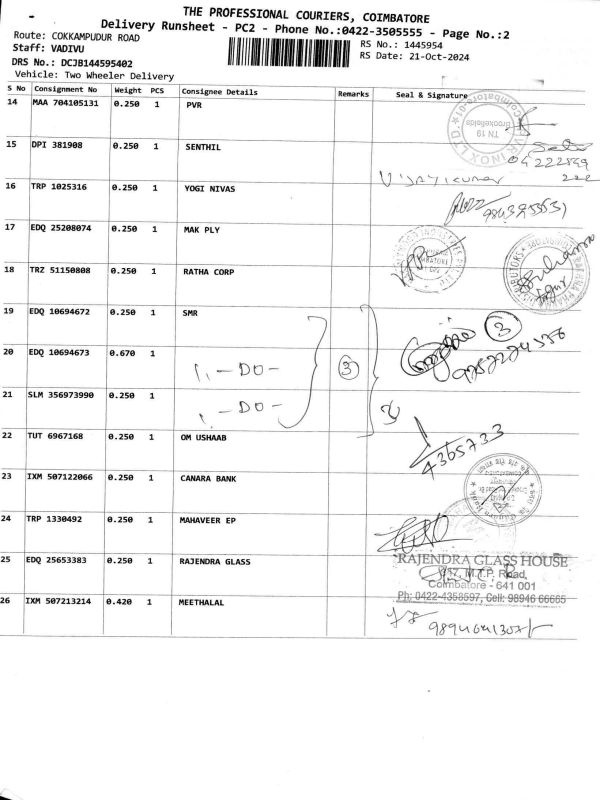 THE PROFESSIONAL COURIERS, COIMBATORE
Delivery Runsheet - PC2 - Phone No.:0422-3505555 - Page No.:2
Route: COKKAMPUDUR ROAD
RS No.: 1445954
Staff: VADIVU
RS Date: 21-Oct-2024
DRS No.: DCJB144595402
Vehicle: Two Wheeler Delivery
S No Consignment No Weight PCS Consignee Details Remarks Seal & Signature
14 MAA 704105131 0.250 1 PVR
TN 19
Brookefields
15 DPI 381908 0.250 1 SENTHIL
16 TRP 1025316 0.250 1 YOGI NIVAS
17 EDQ 25208074 0.250 1 MAK PLY
18 TRZ 51150808 0.250 1 RATHA CORP
19 EDQ 10694672 0.250 1 SMR
3
20 EDQ 10694673 0.670 1
,, -DO- 3
21 SLM 356973990 0.250 1
,, -DO-
22 TUT 6967168 0.250 1 OM USHAAB
4365733
23 IXM 507122066 0.250 1 CANARA BANK
24 TRP 1330492 0.250 1 MAHAVEER EP
25 EDQ 25653383 0.250 1 RAJENDRA GLASS
RAJENDRA GLASS HOUSE
M.T.P. Road,
Coimbatore - 641 001
Ph: 0422-4358597, Cell: 98946 66665
26 IXM 507213214 0.420 1 MEETHALAL